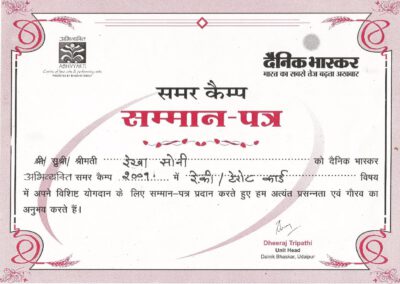 अभिव्यक्ति
ABHIVYAKTI
Centre of fine arts & performing arts
दैनिक भास्कर
भारत का सबसे तेज बढ़ता अखबार
समर कैम्प
सम्मान-पत्र
श्री/सुश्री/श्रीमती रेखा सोनी को दैनिक भास्कर
अभिव्यक्ति समर कैम्प २००९ में रेकी / टेरोट कार्ड विषय
में अपने विशिष्ट योगदान के लिए सम्मान-पत्र प्रदान करते हुए हम अत्यंत प्रसन्नता एवं गौरव का
अनुभव करते हैं।
Dheeraj Tripathi
Unit Head
Dainik Bhaskar, Udaipur